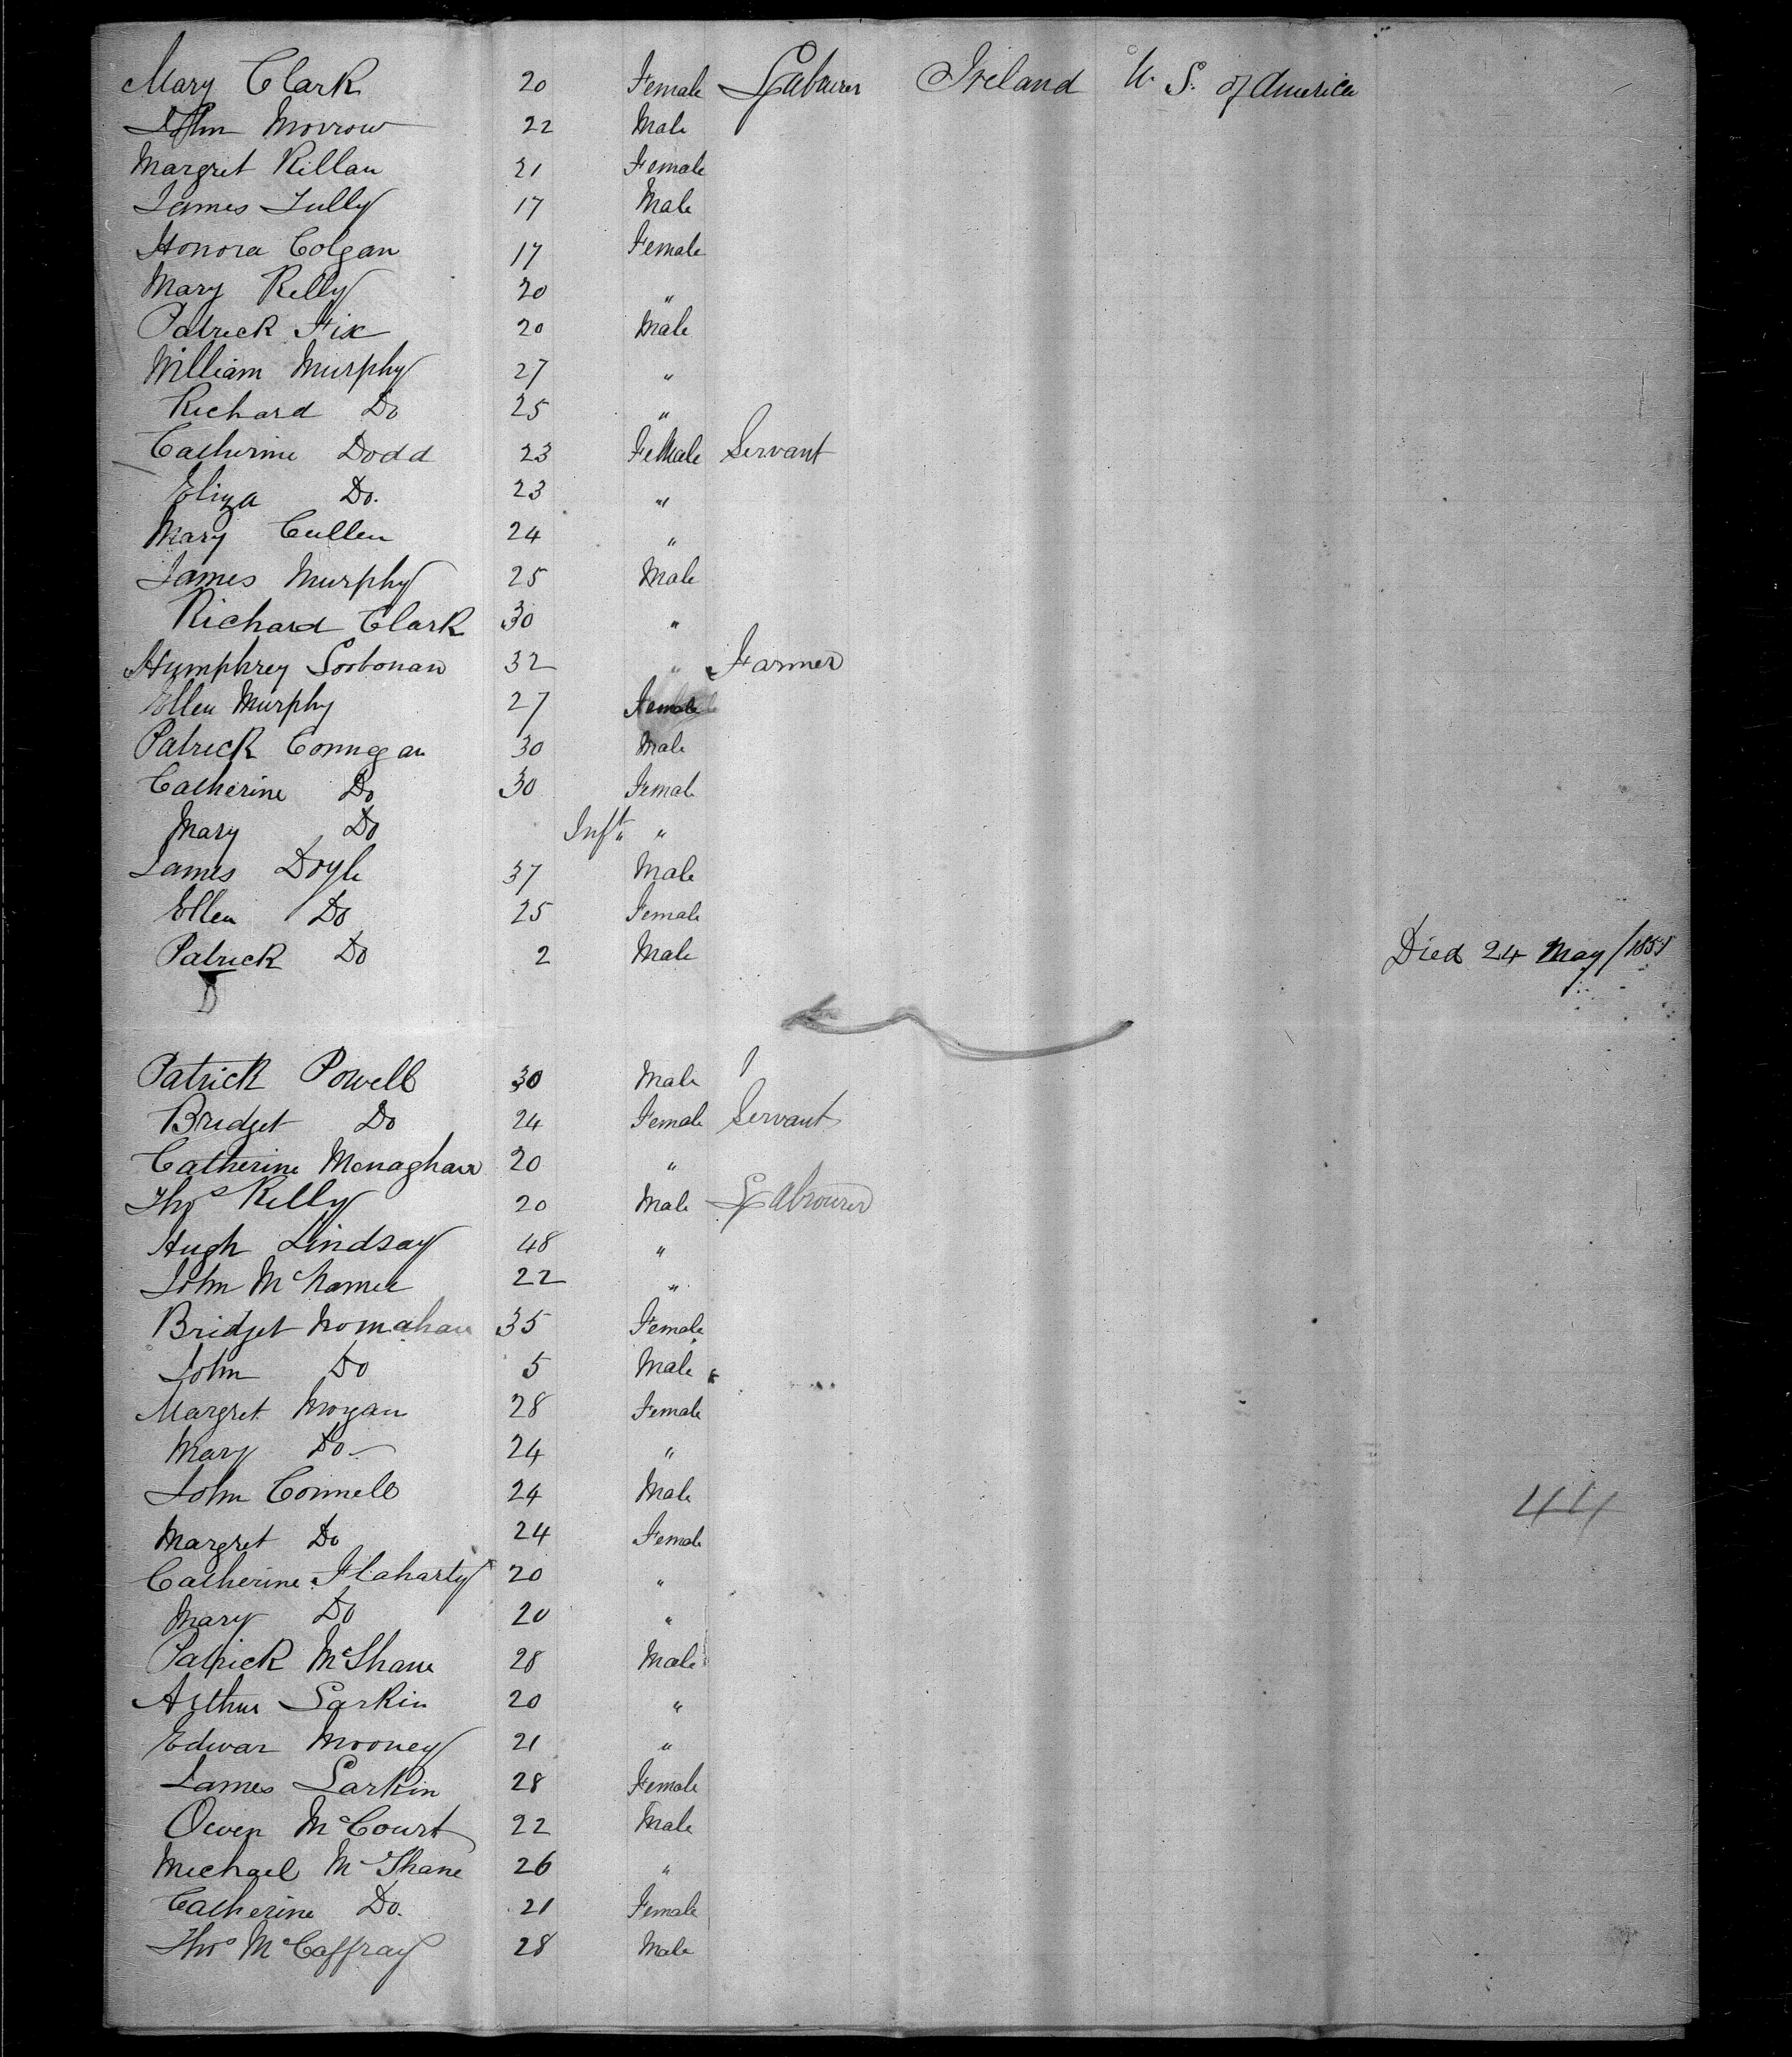 Mary Clark 20 Female Labourer Ireland U. S. of America
John Morrow 22 Male
Margret Killan 21 Female
James Tully 17 Male
Honora Colgan 17 Female
Mary Kelly 20 "
Patrick Fix 20 Male
William Murphy 27 "
Richard Do 25 "
Catherine Dodd 23 Female Servant
Eliza Do. 23 "
Mary Cullen 24 "
James Murphy 25 Male
Richard Clark 30 "
Humphrey 32 " Farmer
Ellen Murphy 27 Female
Patrick 30 Male
Catherine Do 30 Female
Mary Do Inft "
James Doyle 37 Male
Ellen Do 25 Female
Patrick Do 2 Male Died 24 May/1851
D
Patrick Powell 30 Male
Bridget Do 24 Female Servant
Catherine Monaghan 20 "
Thos Kelly 20 Male Labourer
Hugh Lindsay 48 "
John McNamee 22 "
Bridget 35 Female
John Do 5 Male
Margret Morgan 28 Female
Mary Do 24 "
John Connell 24 Male
Margret Do 24 Female
Catherine Flaharty 20 "
Mary Do 20 "
Patrick McShane 28 Male
Arthur Larkin 20 "
Edwar Mooney 21 "
James Larkin 28 Female
Owen McCourt 22 Male
Michael McShane 26 "
Catherine Do. 21 Female
Thos McCaffray 28 Male
44